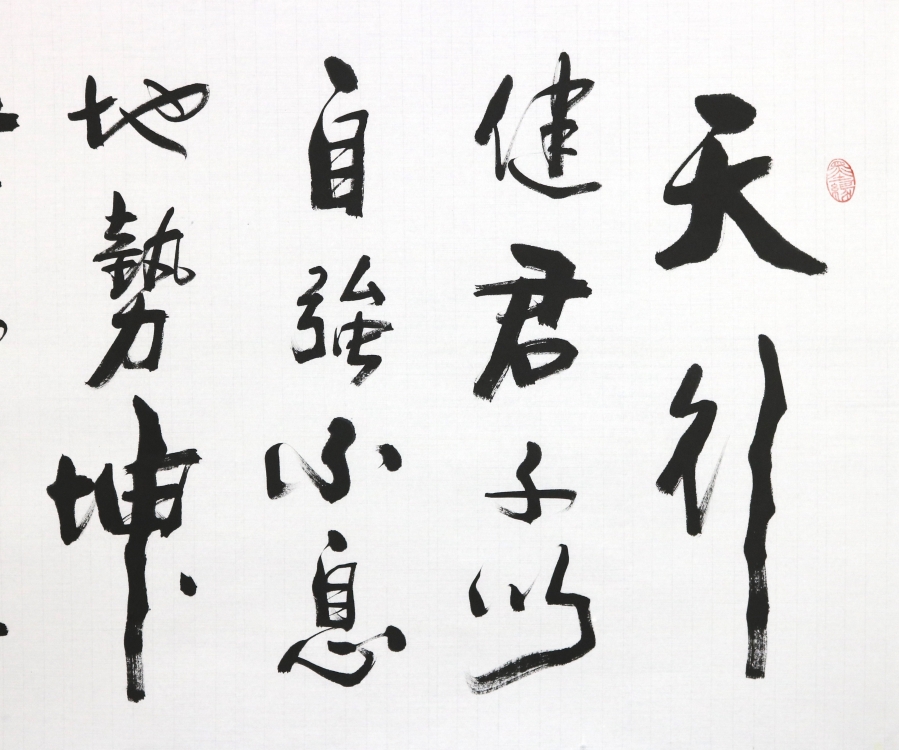 天行
健君子以
自強不息
地勢坤